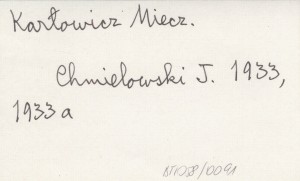 Karłowicz Miecz.
Chmielowski J. 1933,
1933 a